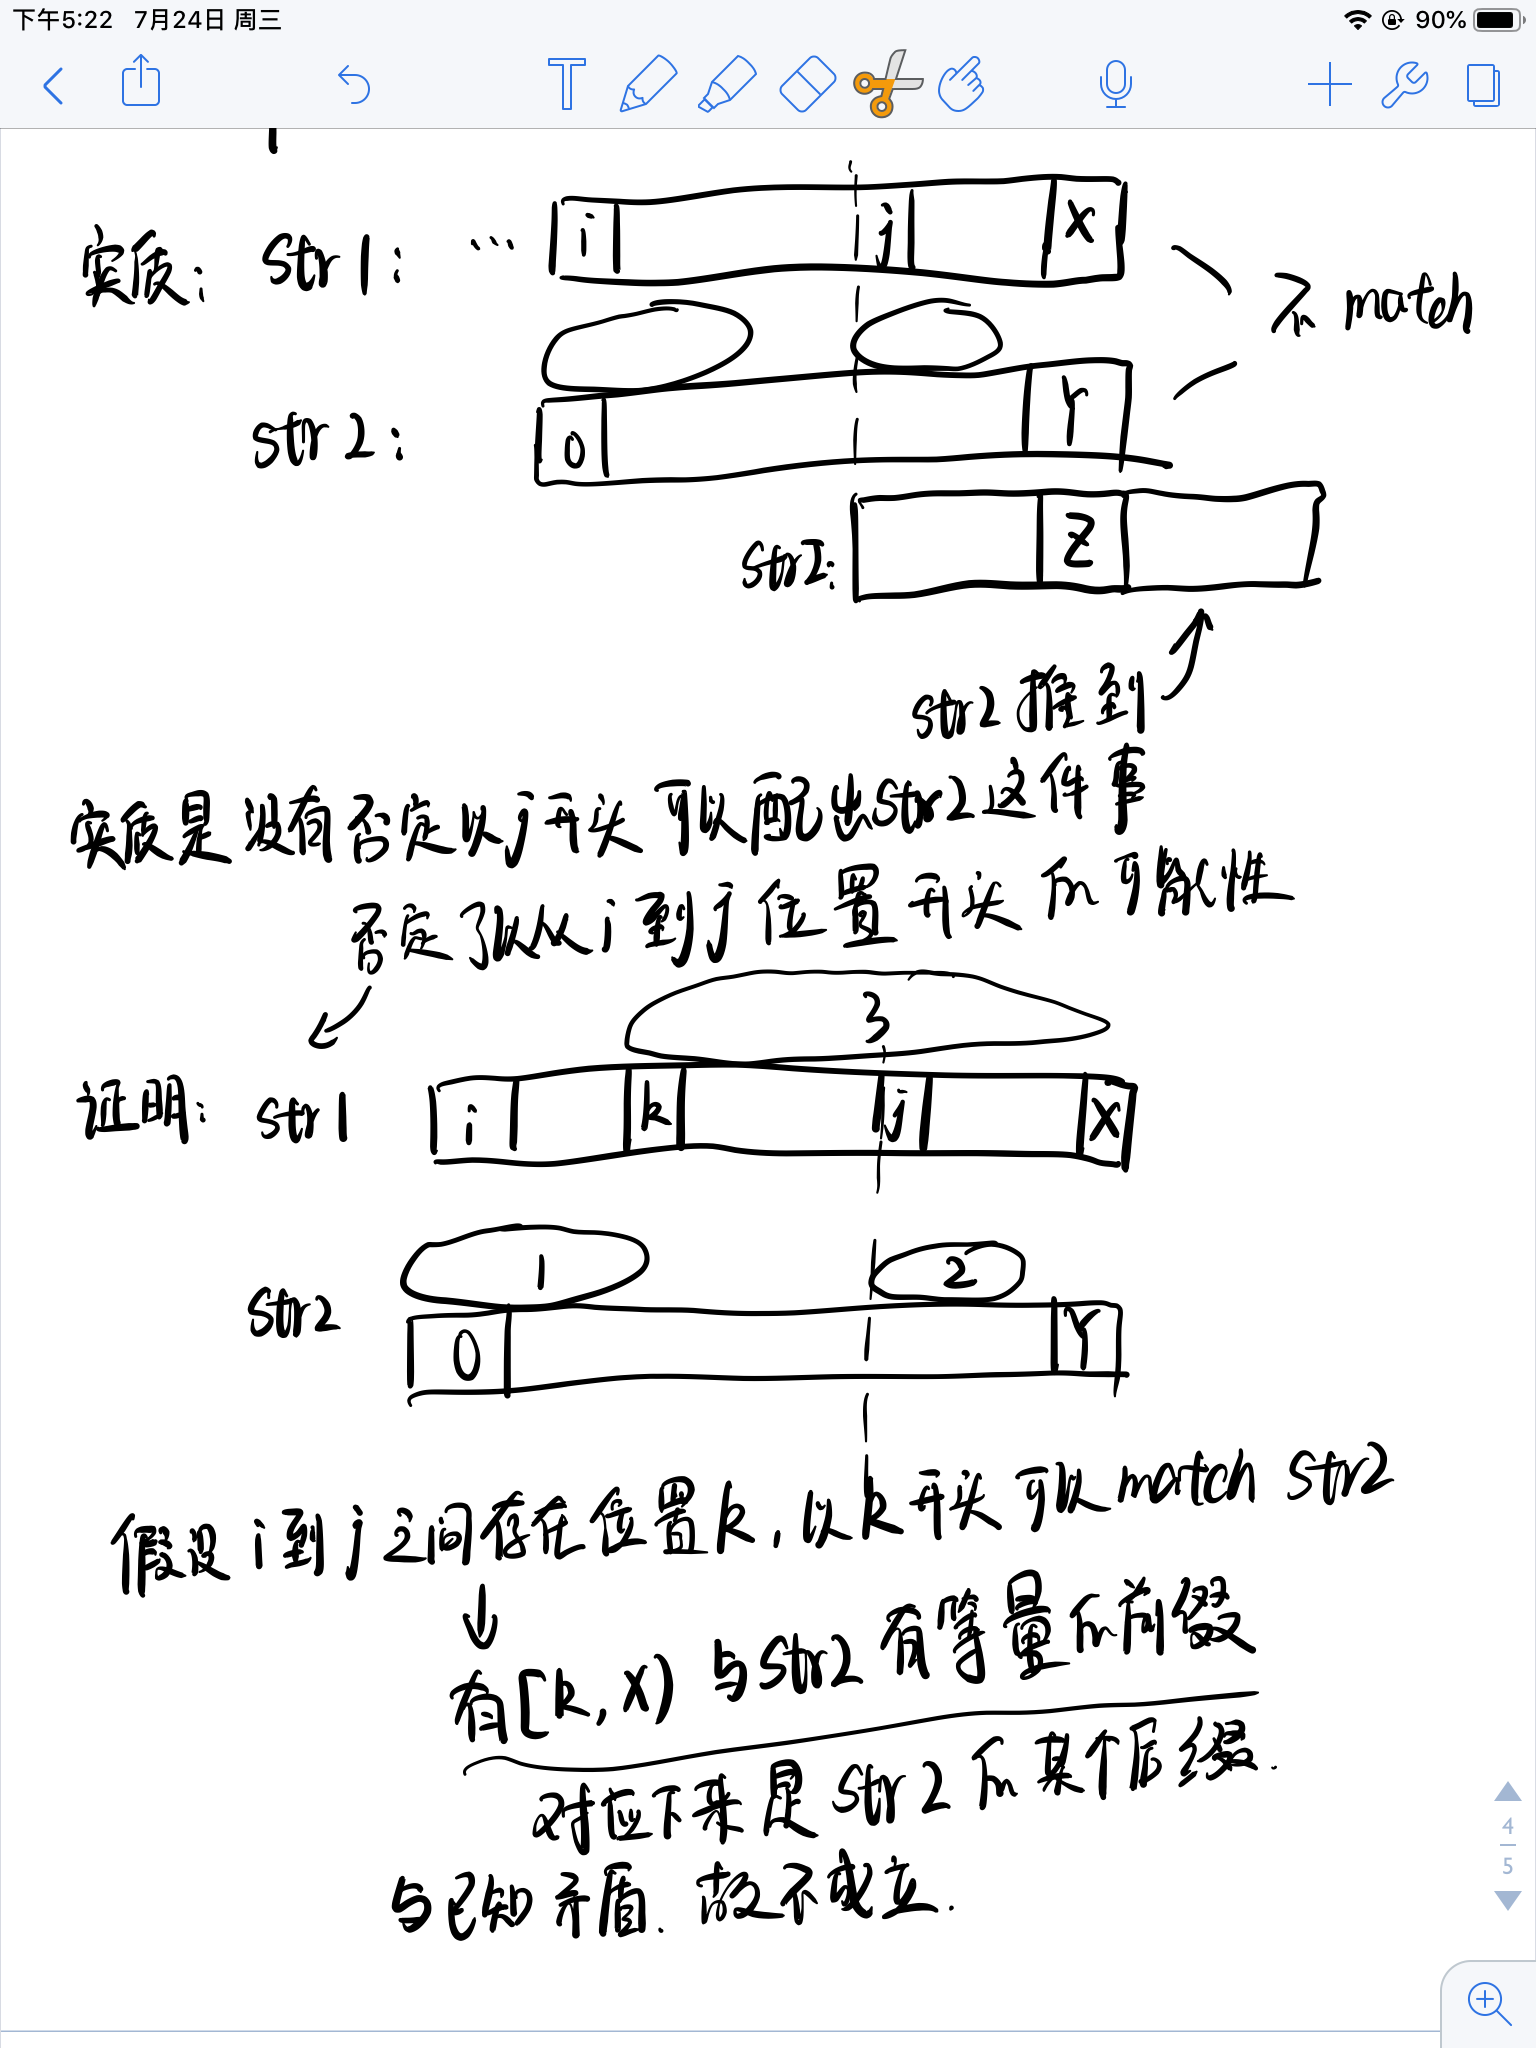 下午5:22 7月24日 周三 90%
T
实质: str1: ... i j X
不 match
str2: 0 Y
str2: Z
str2推到
实质是没有否定以j开头可以配出str2这件事
否定了以从i到j位置开头的可能性
3
证明: str1 i k j X
1 2
str2 0 Y
假设i到j之间存在位置k,以k开头可以match str2
有[k,X)与str2有等量的前缀
对应下来是str2的某个后缀.
与已知矛盾.故不成立.
4
5